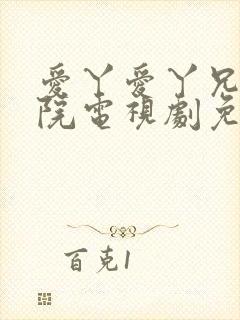 愛丫愛丫兄
院電視劇免
百克1